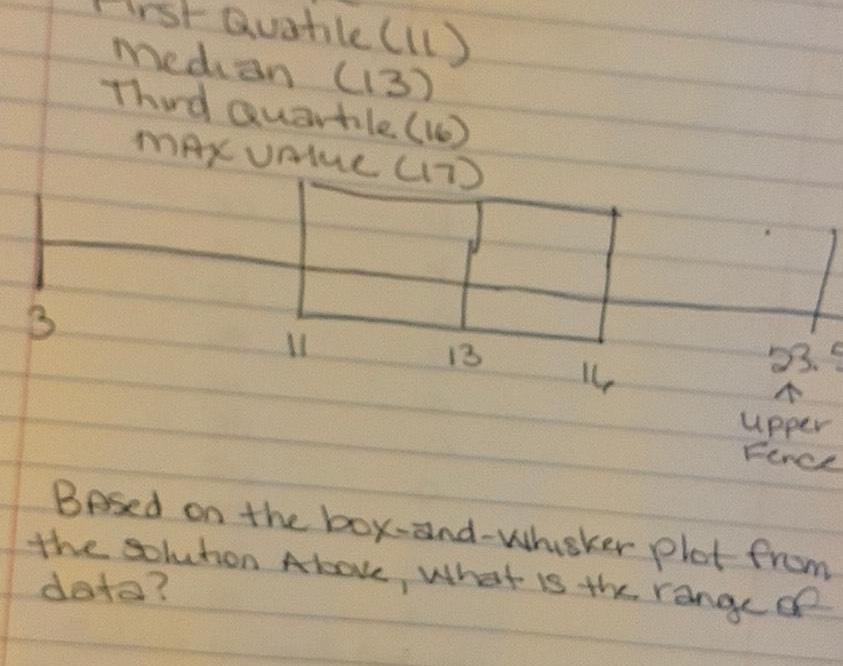 First Quatile (11)
Median (13)
Third Quartile (16)
MAX VALUE (17)
3
11
13
16
23.5
↑
Upper
Fence
Based on the box-and-whisker plot from
the solution Above, what is the range of
data?